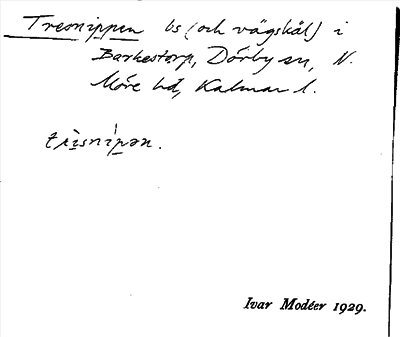 Tresnippen bs (och vägskäl) i
Barkestorp, Dörby sn, N.
Möre hd, Kalmar l.
trìsnípən.
Ivar Modéer 1929.